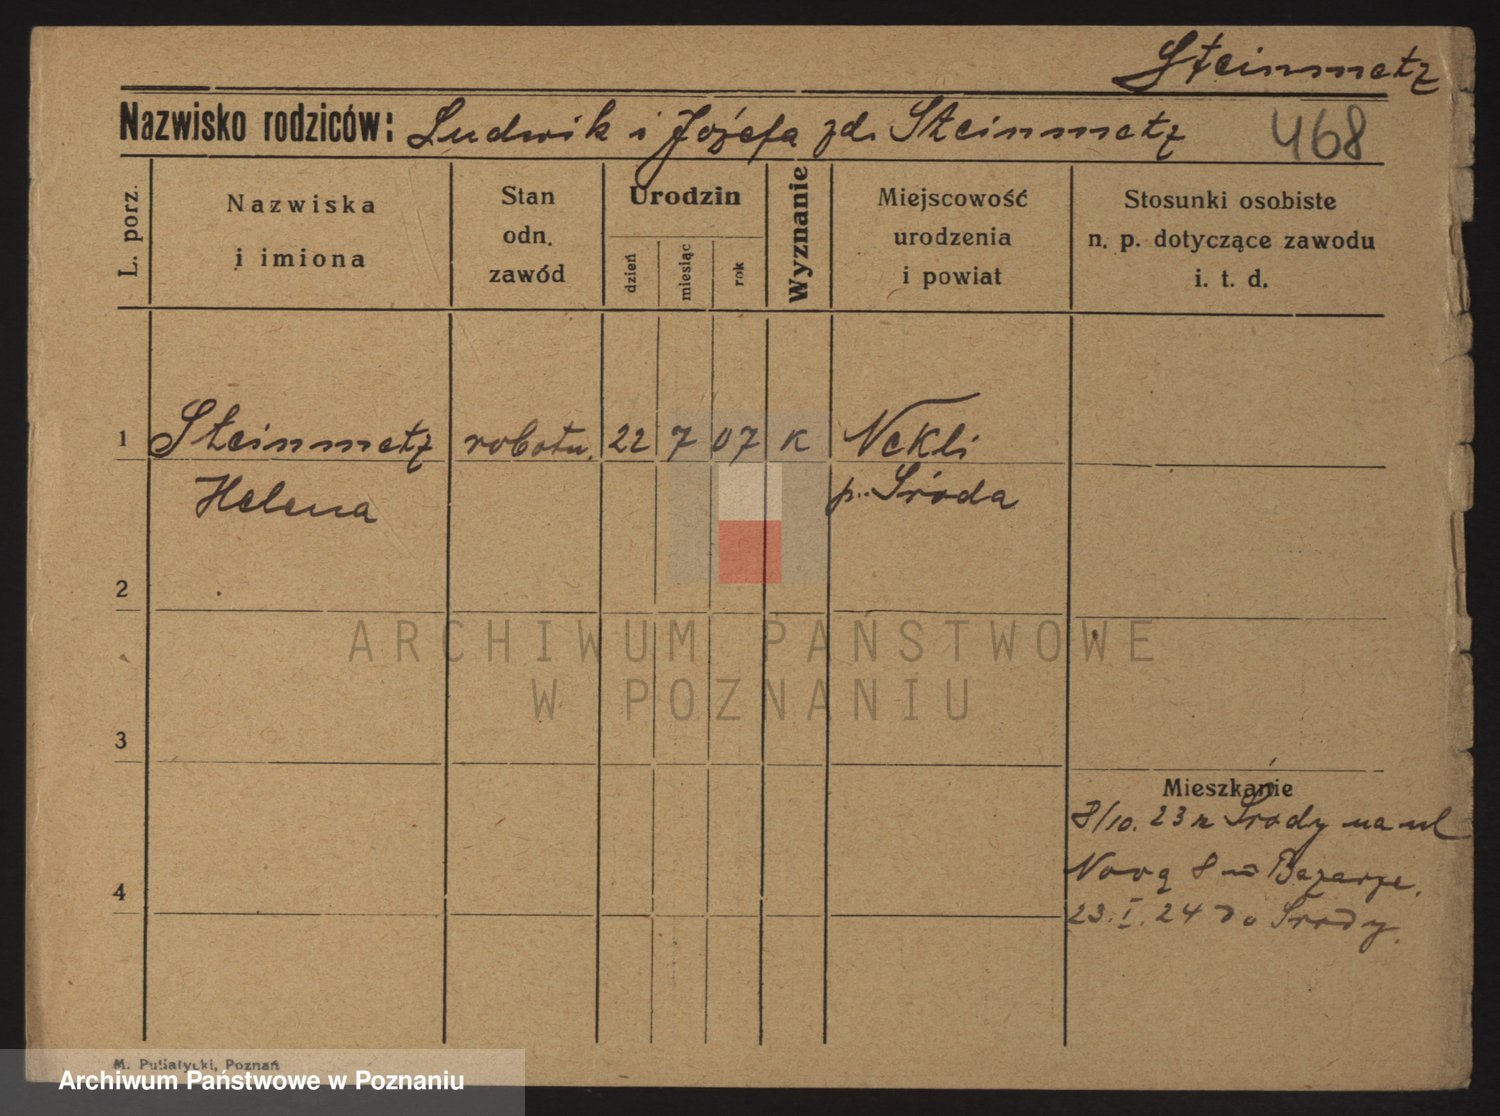 Steinmetz
Nazwisko rodziców: Ludwik i Józefa zd. Steinmetz 468
L. porz.
Nazwiska
i imiona
Stan
odn.
zawód
Urodzin
dzień
miesiąc
rok
Wyznanie
Miejscowość
urodzenia
i powiat
Stosunki osobiste
n. p. dotyczące zawodu
i. t. d.
1 Steinmetz robotn. 22 7 07 K Nekli
Helena p. Środa
2
ARCHIWUM PAŃSTWOWE
W POZNANIU
3
Mieszkanie
8/10. 23 z Środy na ul
8 w Bazarze.
4
23. I. 24 do Środy.
M. Putiatycki, Poznań
Archiwum Państwowe w Poznaniu